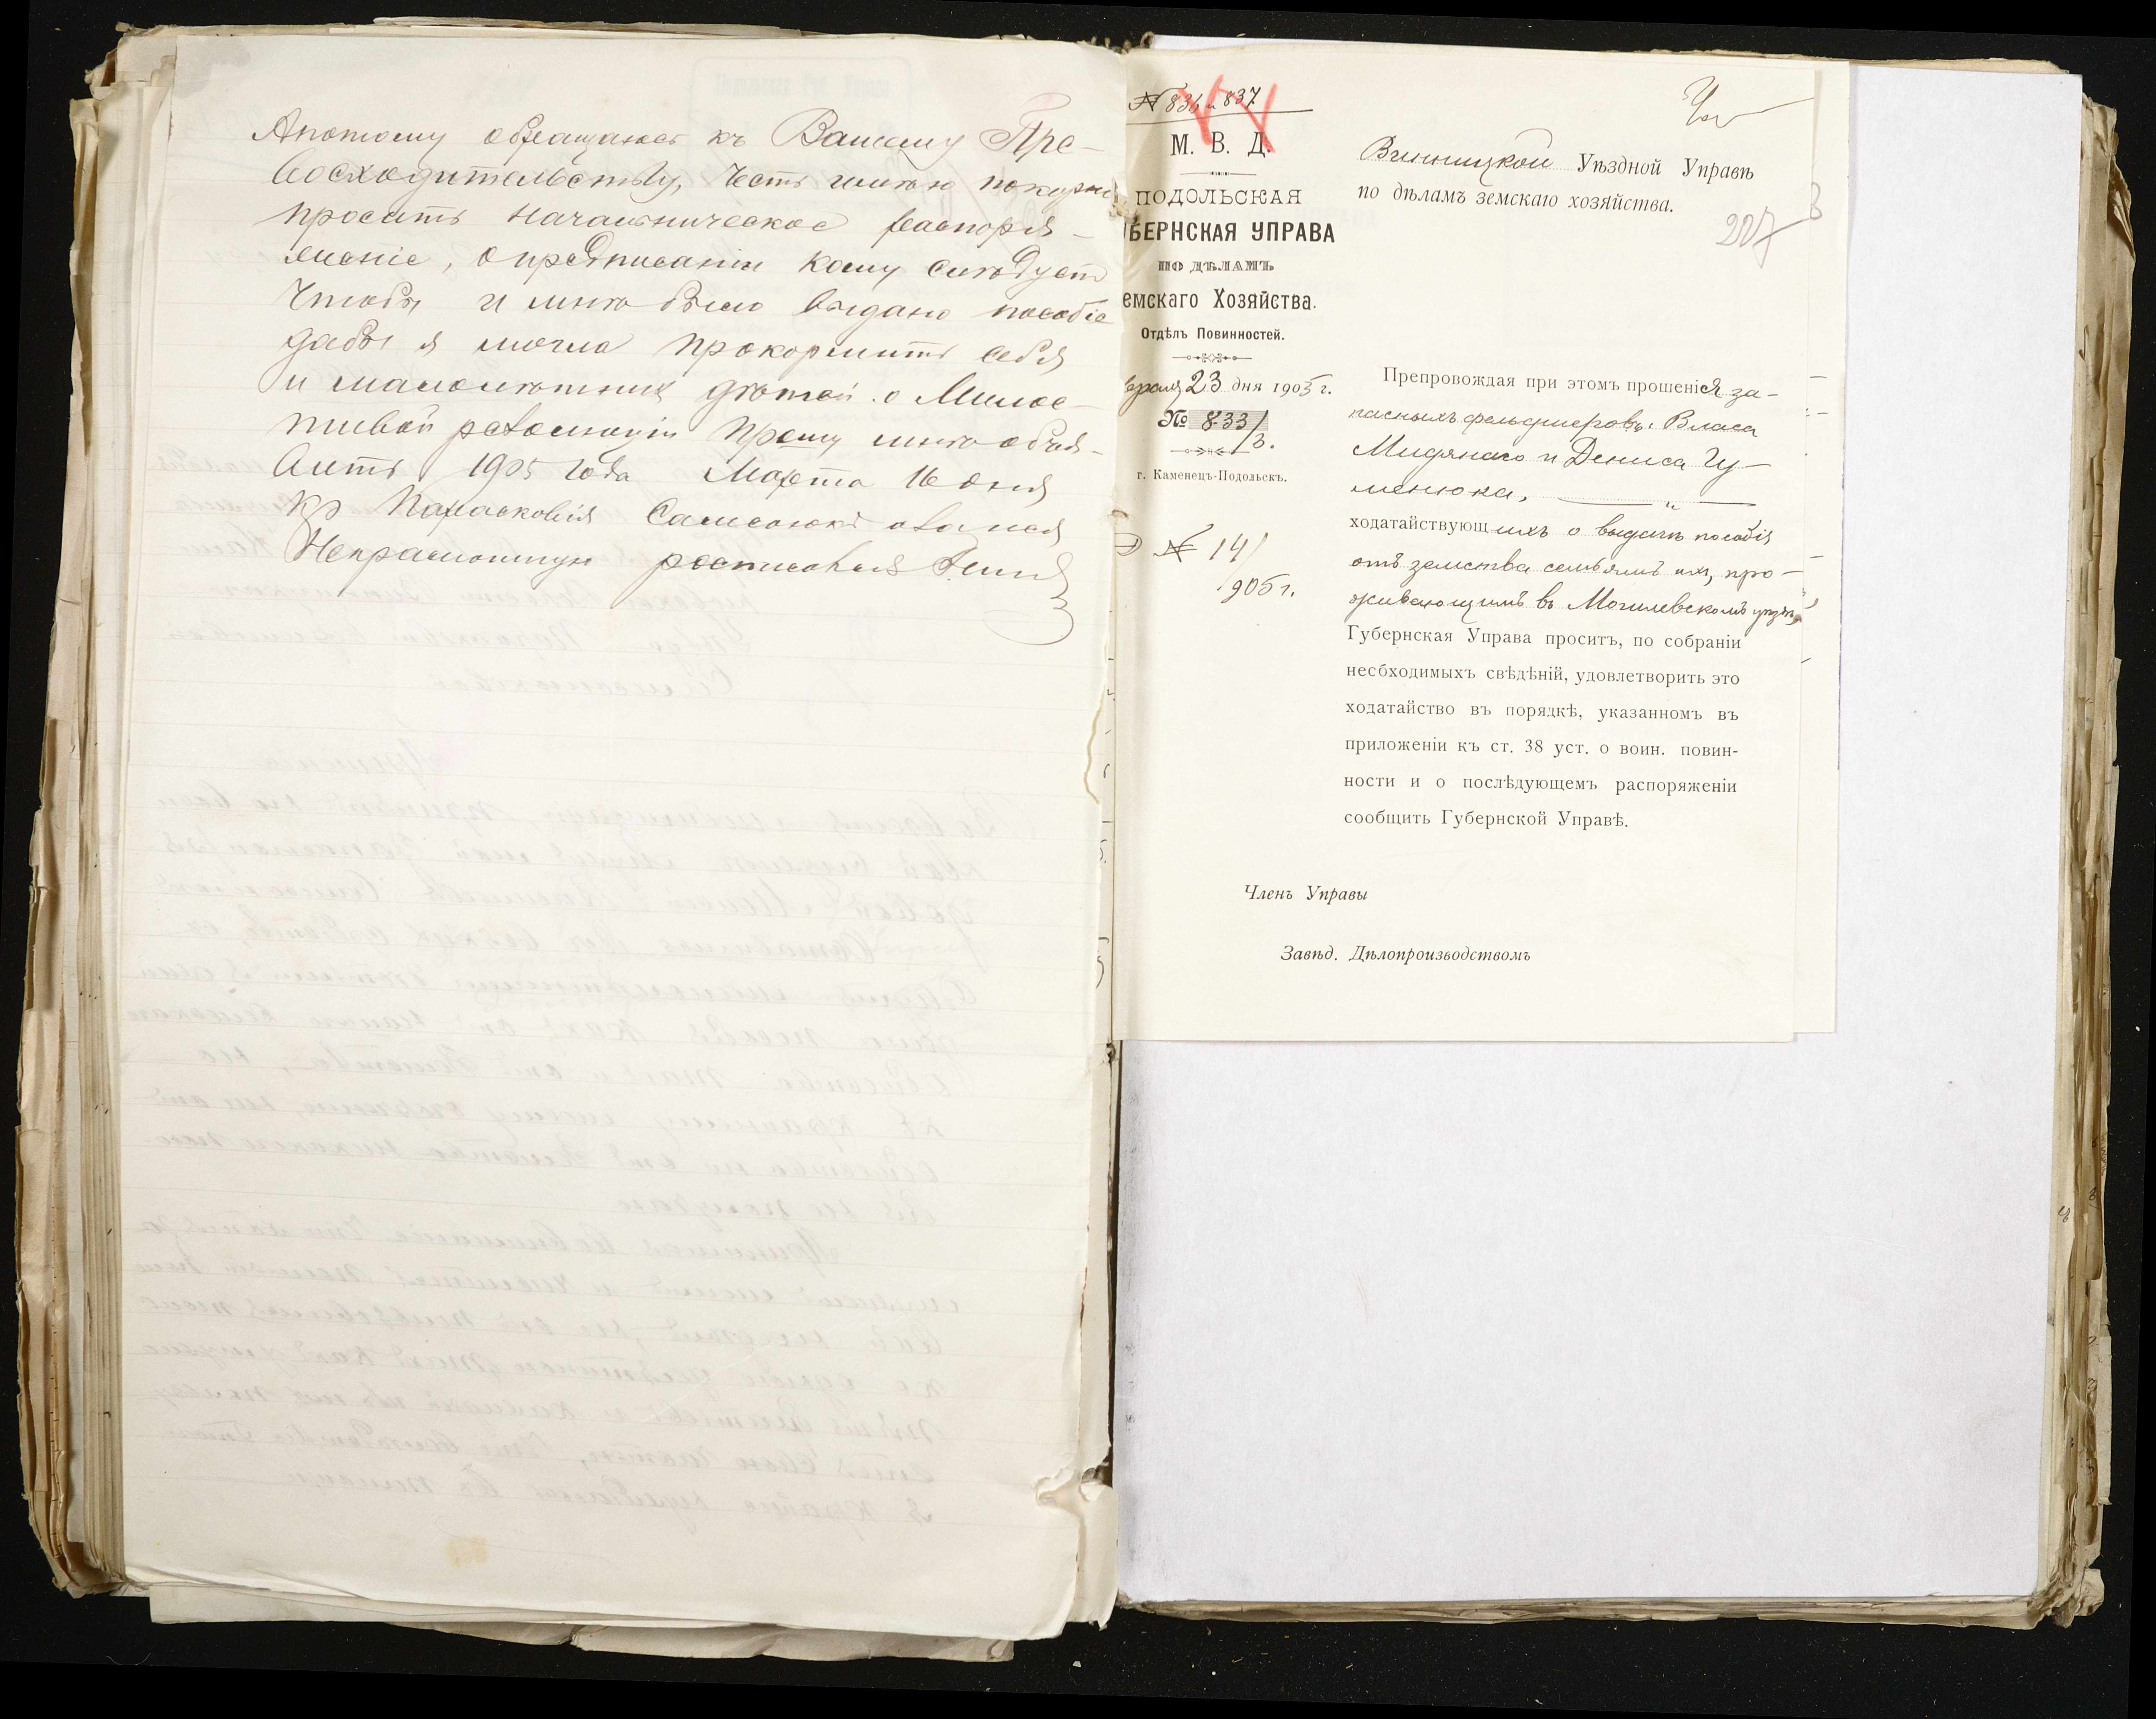 Апотому обращаюсь къ Вашему Пре-
восходительству, Честь имею покорне
просить Начальническое распоря-
жение, о предписании кому следуетъ
Чтобы и мнѣ было выдано пособіе
дабы я могла прокормить себя
и малолѣтних дѣтей. о Милос-
тивой резолюціи прошу мнѣ объя-
вить 1905 года Марта 16 дня
Кр Парасковія Самсонюкъ
Неграмотную росписовался
№ 836 и 837
М. В. Д.
ПОДОЛЬСКАЯ
БЕРНСКАЯ УПРАВА
ПО ДѢЛАМЪ
емскаго Хозяйства.
Отдѣлъ Повинностей.
23 дня 1905 г.
№ 833/3.
г. Каменецъ-Подольскъ.
№ 14/
1905 г.
Винницкой Уѣздной Управѣ
по дѣламъ земскаго хозяйства.
207
Препровождая при этомъ прошенія за-
пасныхъ фельдшеровъ: Власа
и Дениса Гу-
менюка,
ходатайствующихъ о выдачѣ пособія
отъ земства семьямъ их, про-
живающимъ въ Могилевскомъ уѣздѣ,
Губернская Управа проситъ, по собраніи
несбходимыхъ свѣдѣній, удовлетворить это
ходатайство въ порядкѣ, указанномъ въ
приложеніи къ ст. 38 уст. о воин. повин-
ности и о послѣдующемъ распоряженіи
сообщить Губернской Управѣ.
Членъ Управы
Завѣд. Дѣлопроизводствомъ